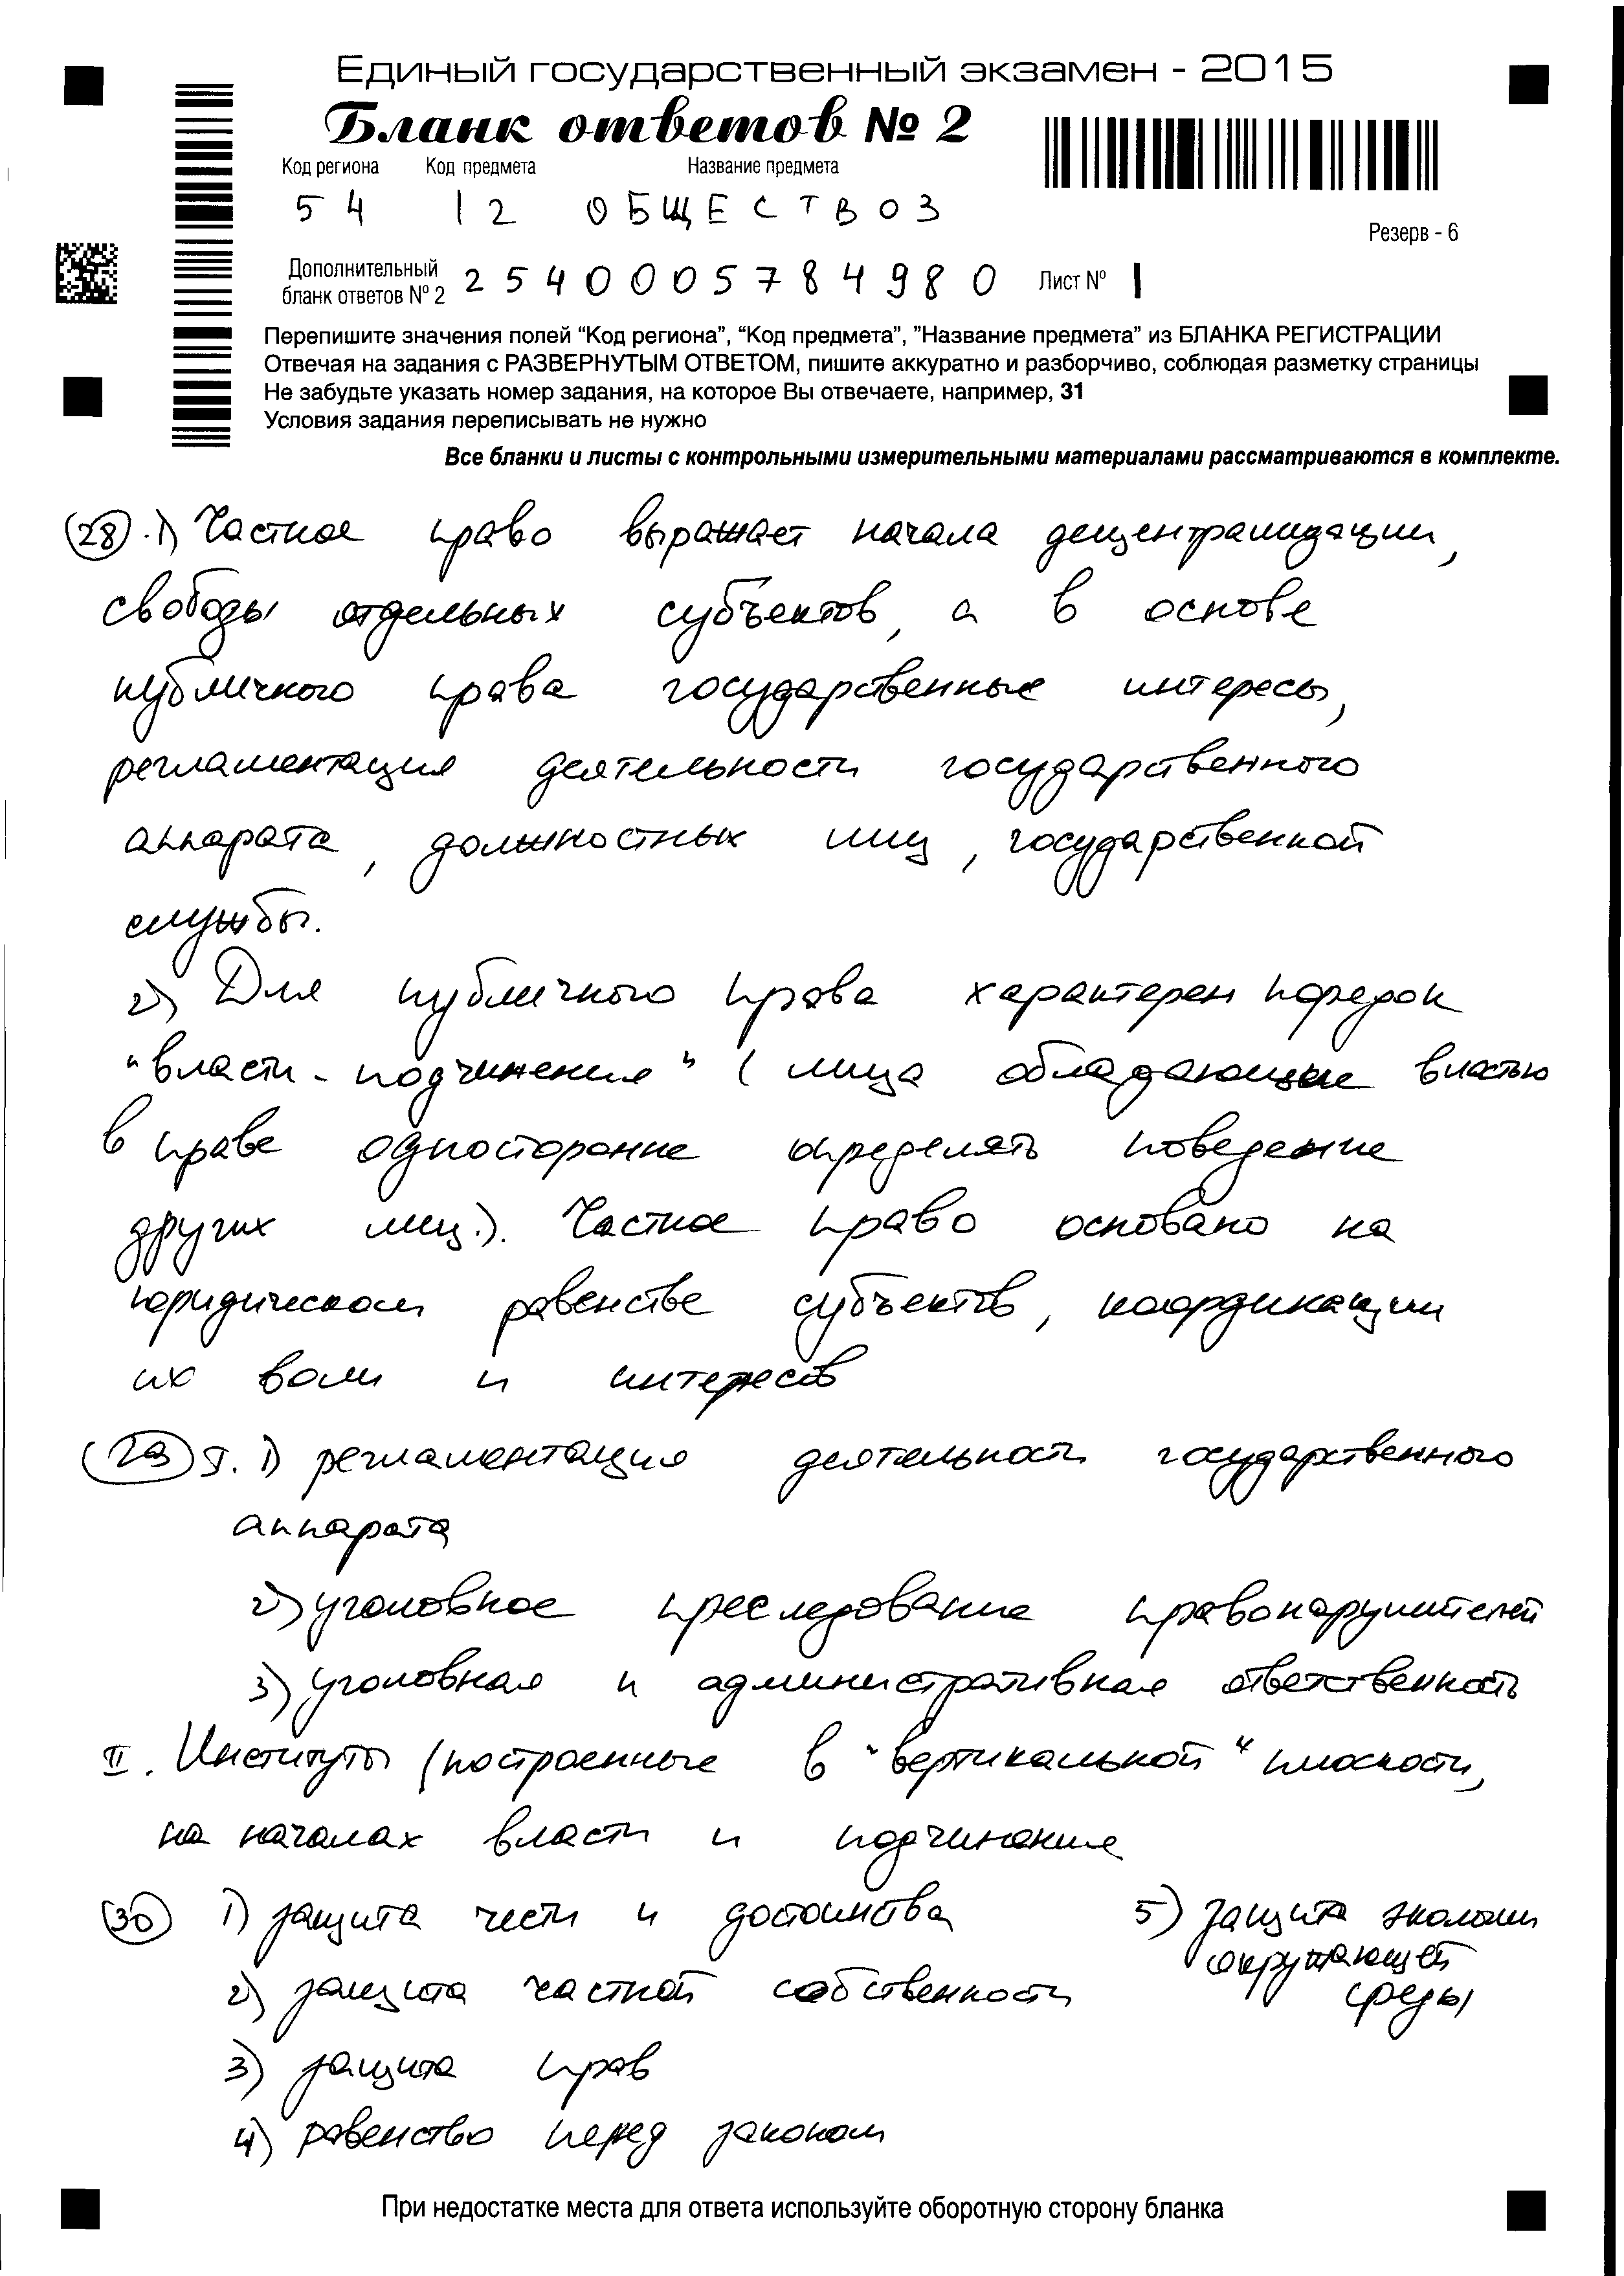 Единый государственный экзамен - 2015
Бланк ответов № 2
Код региона Код предмета Название предмета
54 12 ОБЩЕСТВОЗ
Резерв - 6
Дополнительный
бланк ответов № 2 2540005784980 Лист № 1
Перепишите значения полей “Код региона”, “Код предмета”, ”Название предмета” из БЛАНКА РЕГИСТРАЦИИ
Отвечая на задания с РАЗВЕРНУТЫМ ОТВЕТОМ, пишите аккуратно и разборчиво, соблюдая разметку страницы
Не забудьте указать номер задания, на которое Вы отвечаете, например, 31
Условия задания переписывать не нужно
Все бланки и листы с контрольными измерительными материалами рассматриваются в комплекте.
(28). 1) Частное право выражает начала децентрализации,
свободы отдельных субъектов, а в основе
публичного права государственные интересы,
регламентация деятельности государственного
аппарата, должностных лиц, государственной
службы.
2) Для публичного права характерен порядок
"власти - подчинения" ( лица обладающие властью
в праве односторонне определять поведение
других лиц.). Частное право основано на
юридическом равенстве субъектов, координации
их воли и интересов
(29) I. 1) регламентация деятельности государственного
аппарата
2) уголовное преследование правонарушителей
3) уголовная и административная ответственность
II. Институты (построенные в "вертикальной" плоскости,
на началах власти и подчинения
(30) 1) защита чести и достоинства
2) защита частной собственности
3) защита прав
4) равенство перед законом
5) защита экологии
окружающей
среды
При недостатке места для ответа используйте оборотную сторону бланка